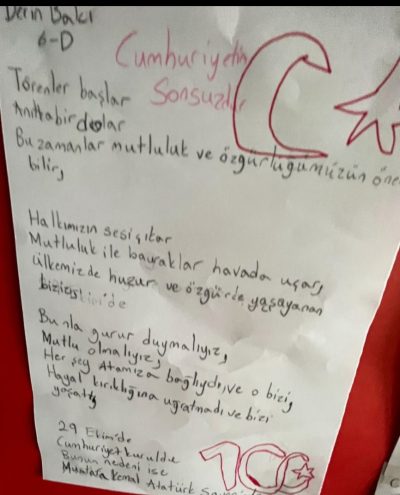 Derin Bakı
6-D
Cumhuriyetin
Sonsuzdur
Törenler başlar
Anıtkabir dolar
Bu zamanlar mutluluk ve özgürlüğümüzün öne
bilir,
Halkımızın sesi çıkar
Mutluluk ile bayraklar havada uçar,
Ülkemizde huzur ve özgürde yaşayanan
Bunla gurur duymalıyız,
Mutlu olmalıyız,
Her şey Atamıza bağlıydı, ve o bizi,
Hayal kırıklığına uğratmadı ve bizi
yaşattı
29 Ekim'de
Cumhuriyet kuruldu
Bunun nedeni ise
Mustafa Kemal Atatürk
100